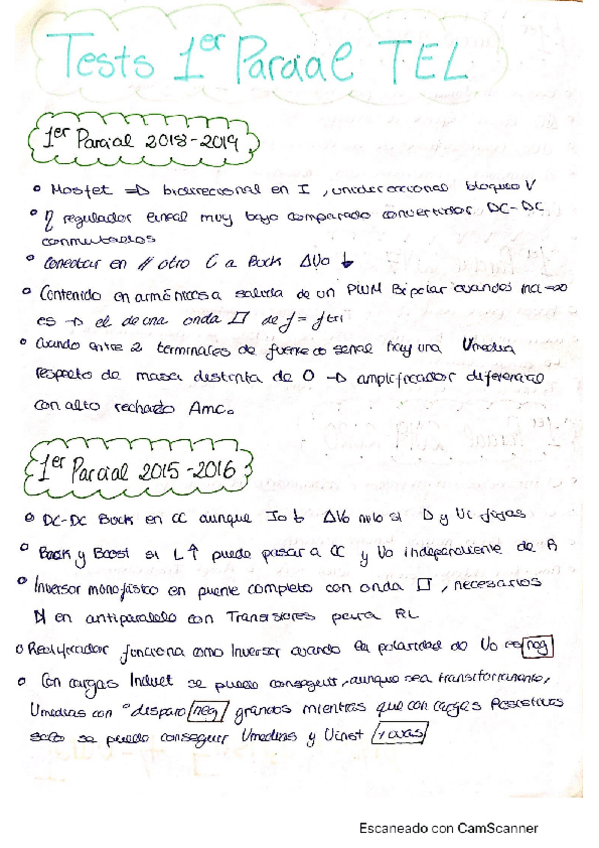 Tests 1er Parcial TEL
1er Parcial 2018-2019
• Mosfet => bidireccional en I, unidireccional bloqueo V
• η regulador lineal muy bajo comparado convertidor DC-DC
conmutados
• Conectar en // otro C a Buck ΔUo ↓
• Contenido en armónicos a salida de un PWM Bipolar cuando ma→∞
es → el de una onda ⊓ de f = ftri
• Cuando entre 2 terminales de fuente de señal hay una Umedia
respecto de masa distinta de 0 → amplificador diferencial
con alto rechazo Amc.
1er Parcial 2015-2016
• DC-DC Buck en CC aunque Io ↓ ΔVo nulo si D y Ui fijas
• Buck y Boost si L↑ puede pasar a CC y Vo independiente de R
• Inversor monofásico en puente completo con onda ⊓, necesarios
en antiparalelo con Transistores para RL
• Rectificador funciona como Inversor cuando la polaridad de Uo es neg
• Con cargas Induct se puede conseguir, aunque sea transitoriamente,
Umedias con disparo neg grandes mientras que con cargas Resistivas
solo se puede conseguir Umedias y Uinst +ivas
Escaneado con CamScanner